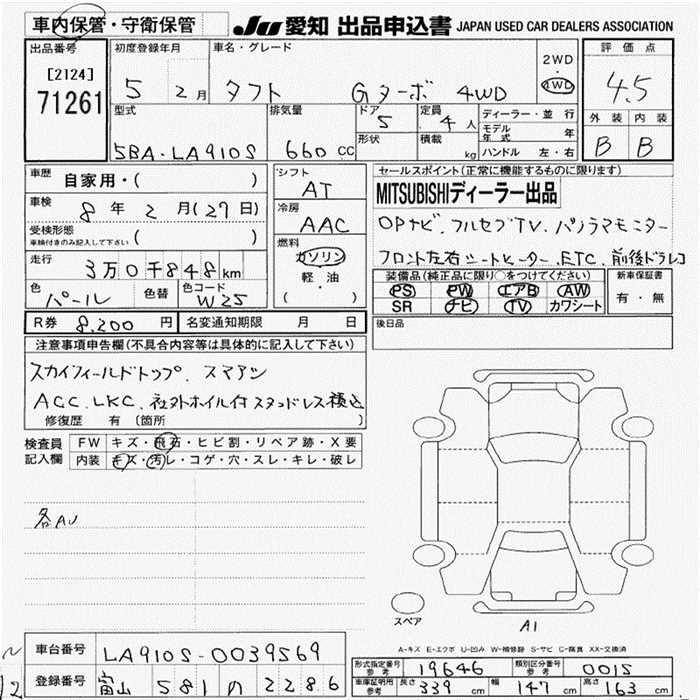 車内保管・守衛保管 JU 愛知 出品申込書 JAPAN USED CAR DEALERS ASSOCIATION
出品番号 初度登録年月 車名・グレード 評価点
[2124] 5 2月 タフト Gターボ 4WD 2WD 4WD 4.5
71261 型式 排気量 ドア 5 定員 4人 ディーラー・並行 外装 内装
モデル年式 年
5BA-LA910S 660cc 形状 積載 kg ハンドル 左・右 B B
車歴 自家用・( ) シフト AT セールスポイント(正常に機能するものに限ります)
MITSUBISHIディーラー出品
車検 8年2月(27日) 冷房 AAC
OPナビ. フルセグTV. パノラマモニター
受検形態 ( )
車検付きのみ記入して下さい
燃料 ガソリン 軽油 ( )
フロント左右シートヒーター. ETC. 前後ドラレコ
走行 3万0千848km
装備品(純正品に限り○をつけてください) 新車保証書
色 パール 色替 色コード W25
PS PW エアB AW 有・無
SR ナビ TV カワシート
R券 8,200円 名変通知期限 月 日 後日品
注意事項申告欄(不具合内容等は具体的に記入して下さい)
スカイフィールドトップ. スマアシ
ACC. LKC. 社外ホイル付スタッドレス積込
修復歴 有 〔箇所 〕
検査員 FW キズ・飛石・ヒビ割・リペア跡・X要
記入欄 内装 キズ・汚レ・コゲ・穴・スレ・キレ・破レ
各AU
スペア A1
A-キズ E-エクボ U-凹み W-補修跡 S-サビ C-腐食 XX-交換済
車台番号 LA910S-0039569
形式指定番号 参考 19646 類別区分番号 参考 0015
登録番号 富山 581 の 2286
車庫証明用 参考 長さ 339cm 幅 147cm 高さ 163cm